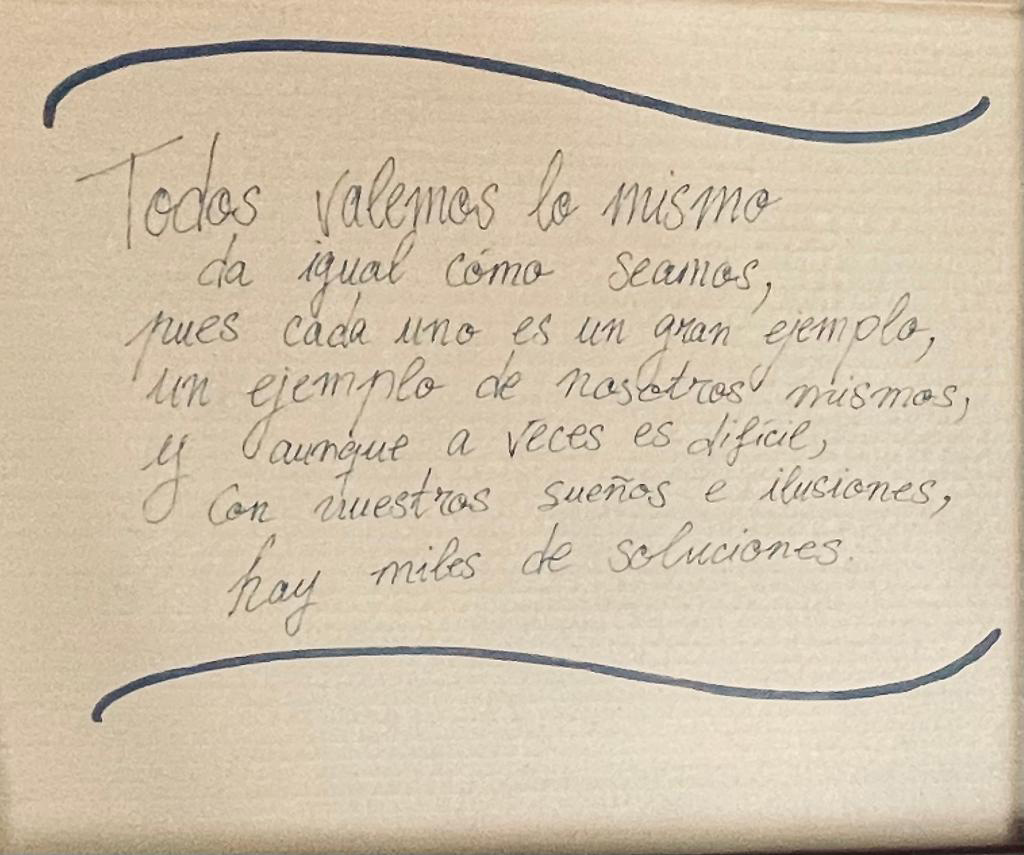 Todos valemos lo mismo
da igual cómo seamos,
pues cada uno es un gran ejemplo,
un ejemplo de nosotros mismos,
y aunque a veces es difícil,
con nuestros sueños e ilusiones,
hay miles de soluciones.